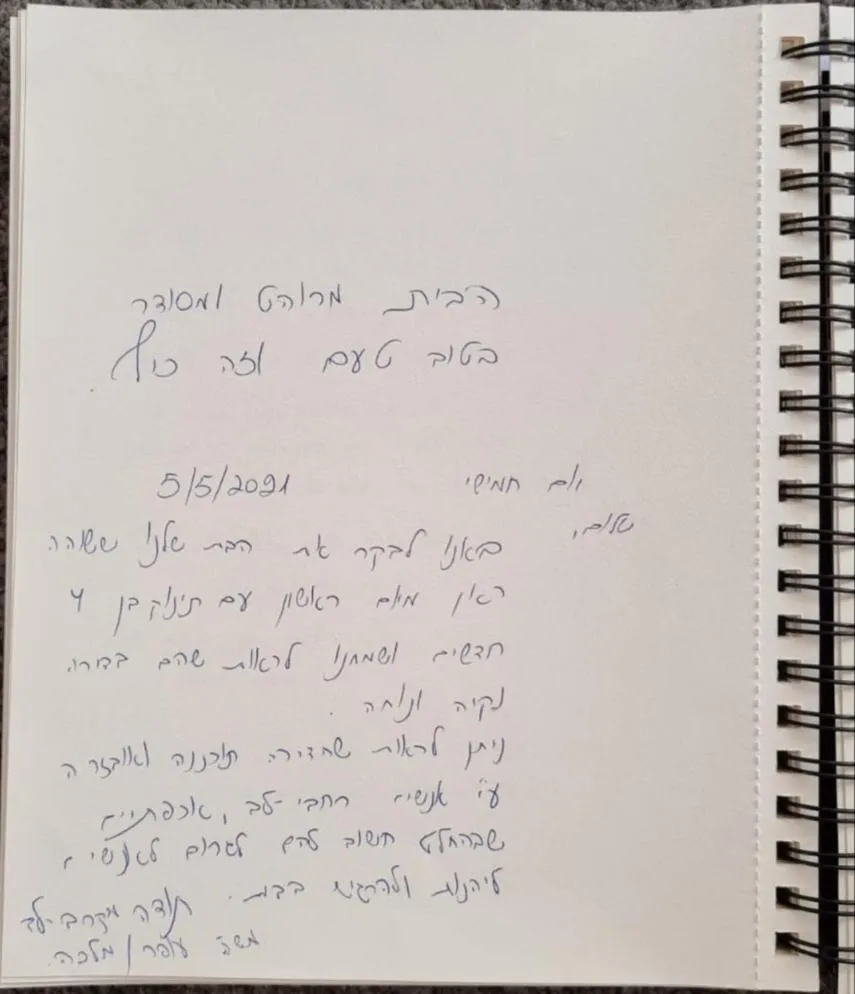 הבית מרוהט ומסודר
בטוב טעם וזה כיף
יום חמישי 5/5/2021
שלום,
באנו לבקר את הבת שלנו ששוהה
כאן מיום ראשון עם תינוק בן 4
חדשים ושמחנו לראות שהם בדירה
נקיה ונוחה.
ניתן לראות שהדירה תוכננה ואובזרה
ע"י אנשים רחבי-לב, אכפתיים
שבהחלט חשוב להם לגרום לאנשים
ליהנות ולהרגיש בבית. תודה מקרב-לב
מש' עופרן מלכה.